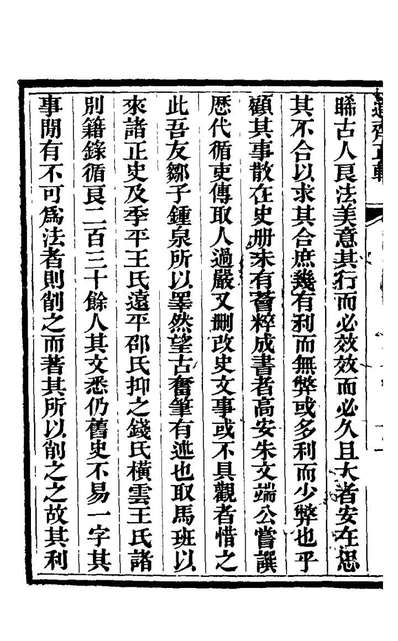 聯古人良法美意其行而必效效而必久且大者安在思
其不合以求其合庶幾有利而無弊或多利而少弊也乎
顧其事散在史册未有薈粹成書者高安朱文端公嘗譔
歷代循吏傳取人過嚴又删改史文事或不具觀者惜之
此吾友鄒子鍾泉所以睪然望古奮筆有述也取馬班以
來諸正史及季平王氏遠平邵氏抑之錢氏橫雲王氏諸
別籍錄循良二百三十餘人其文悉仍舊史不易一字其
事閒有不可爲法者則削之而著其所以削之之故其利